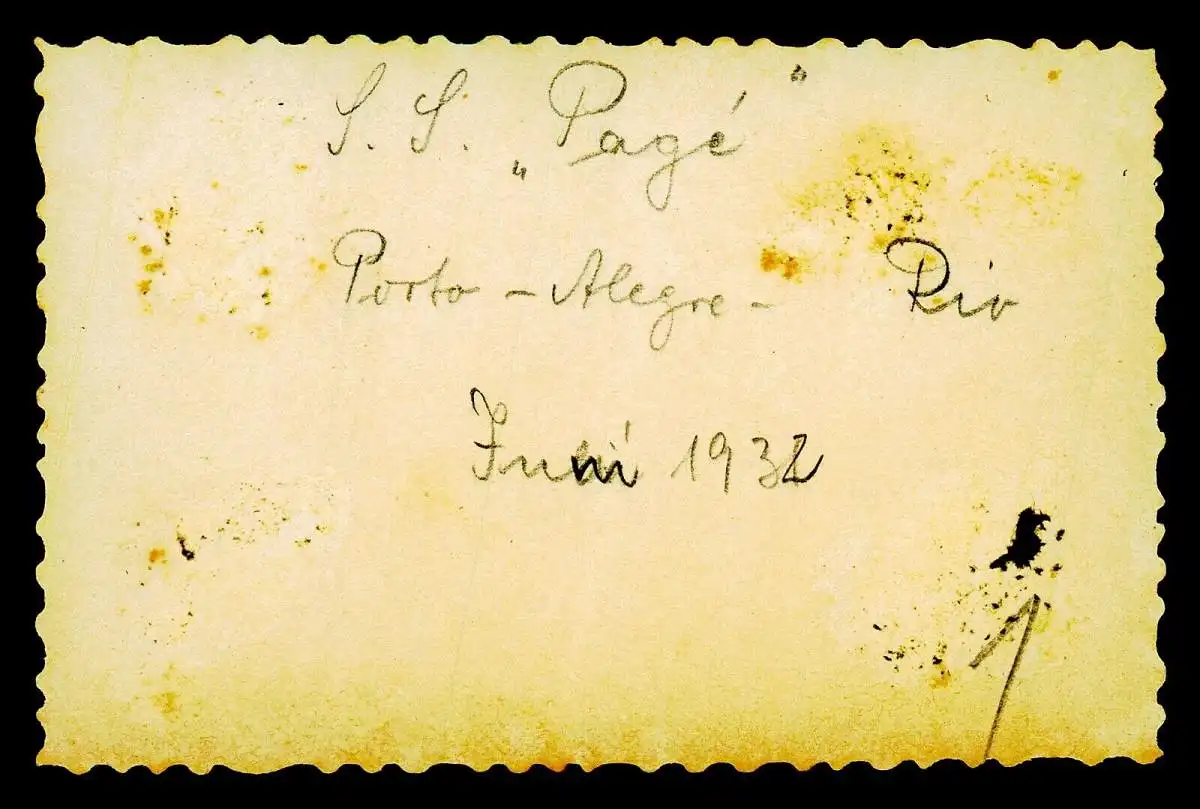 S. S. „Pagé"
Porto - Alegre - Rio
1932
1